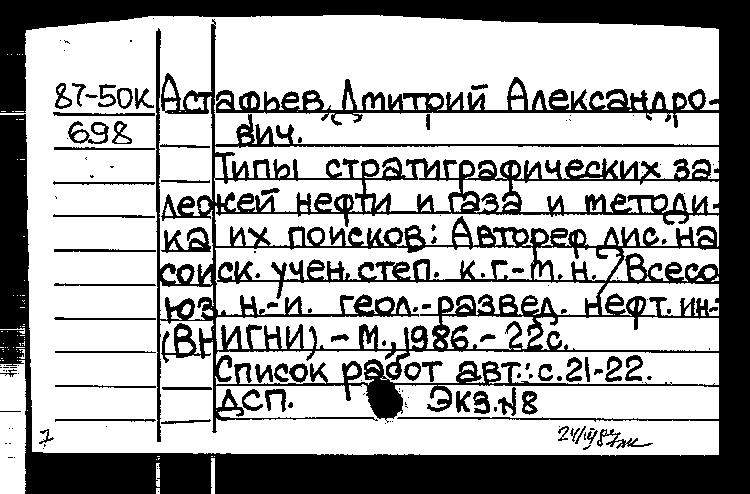 87-50К Астафьев, Дмитрий Александро-
698 вич.
Типы стратиграфических за-
лежей нефти и газа и методи-
ка их поисков: Автореф. дис. на
соиск. учен. степ. к.г.-м.н. / Всесо
юз. н.-и. геол.-развед. нефт. ин-
(ВНИГНИ). - М., 1986. - 22с.
Список работ авт.: с.21-22.
ДСП. Экз.№8